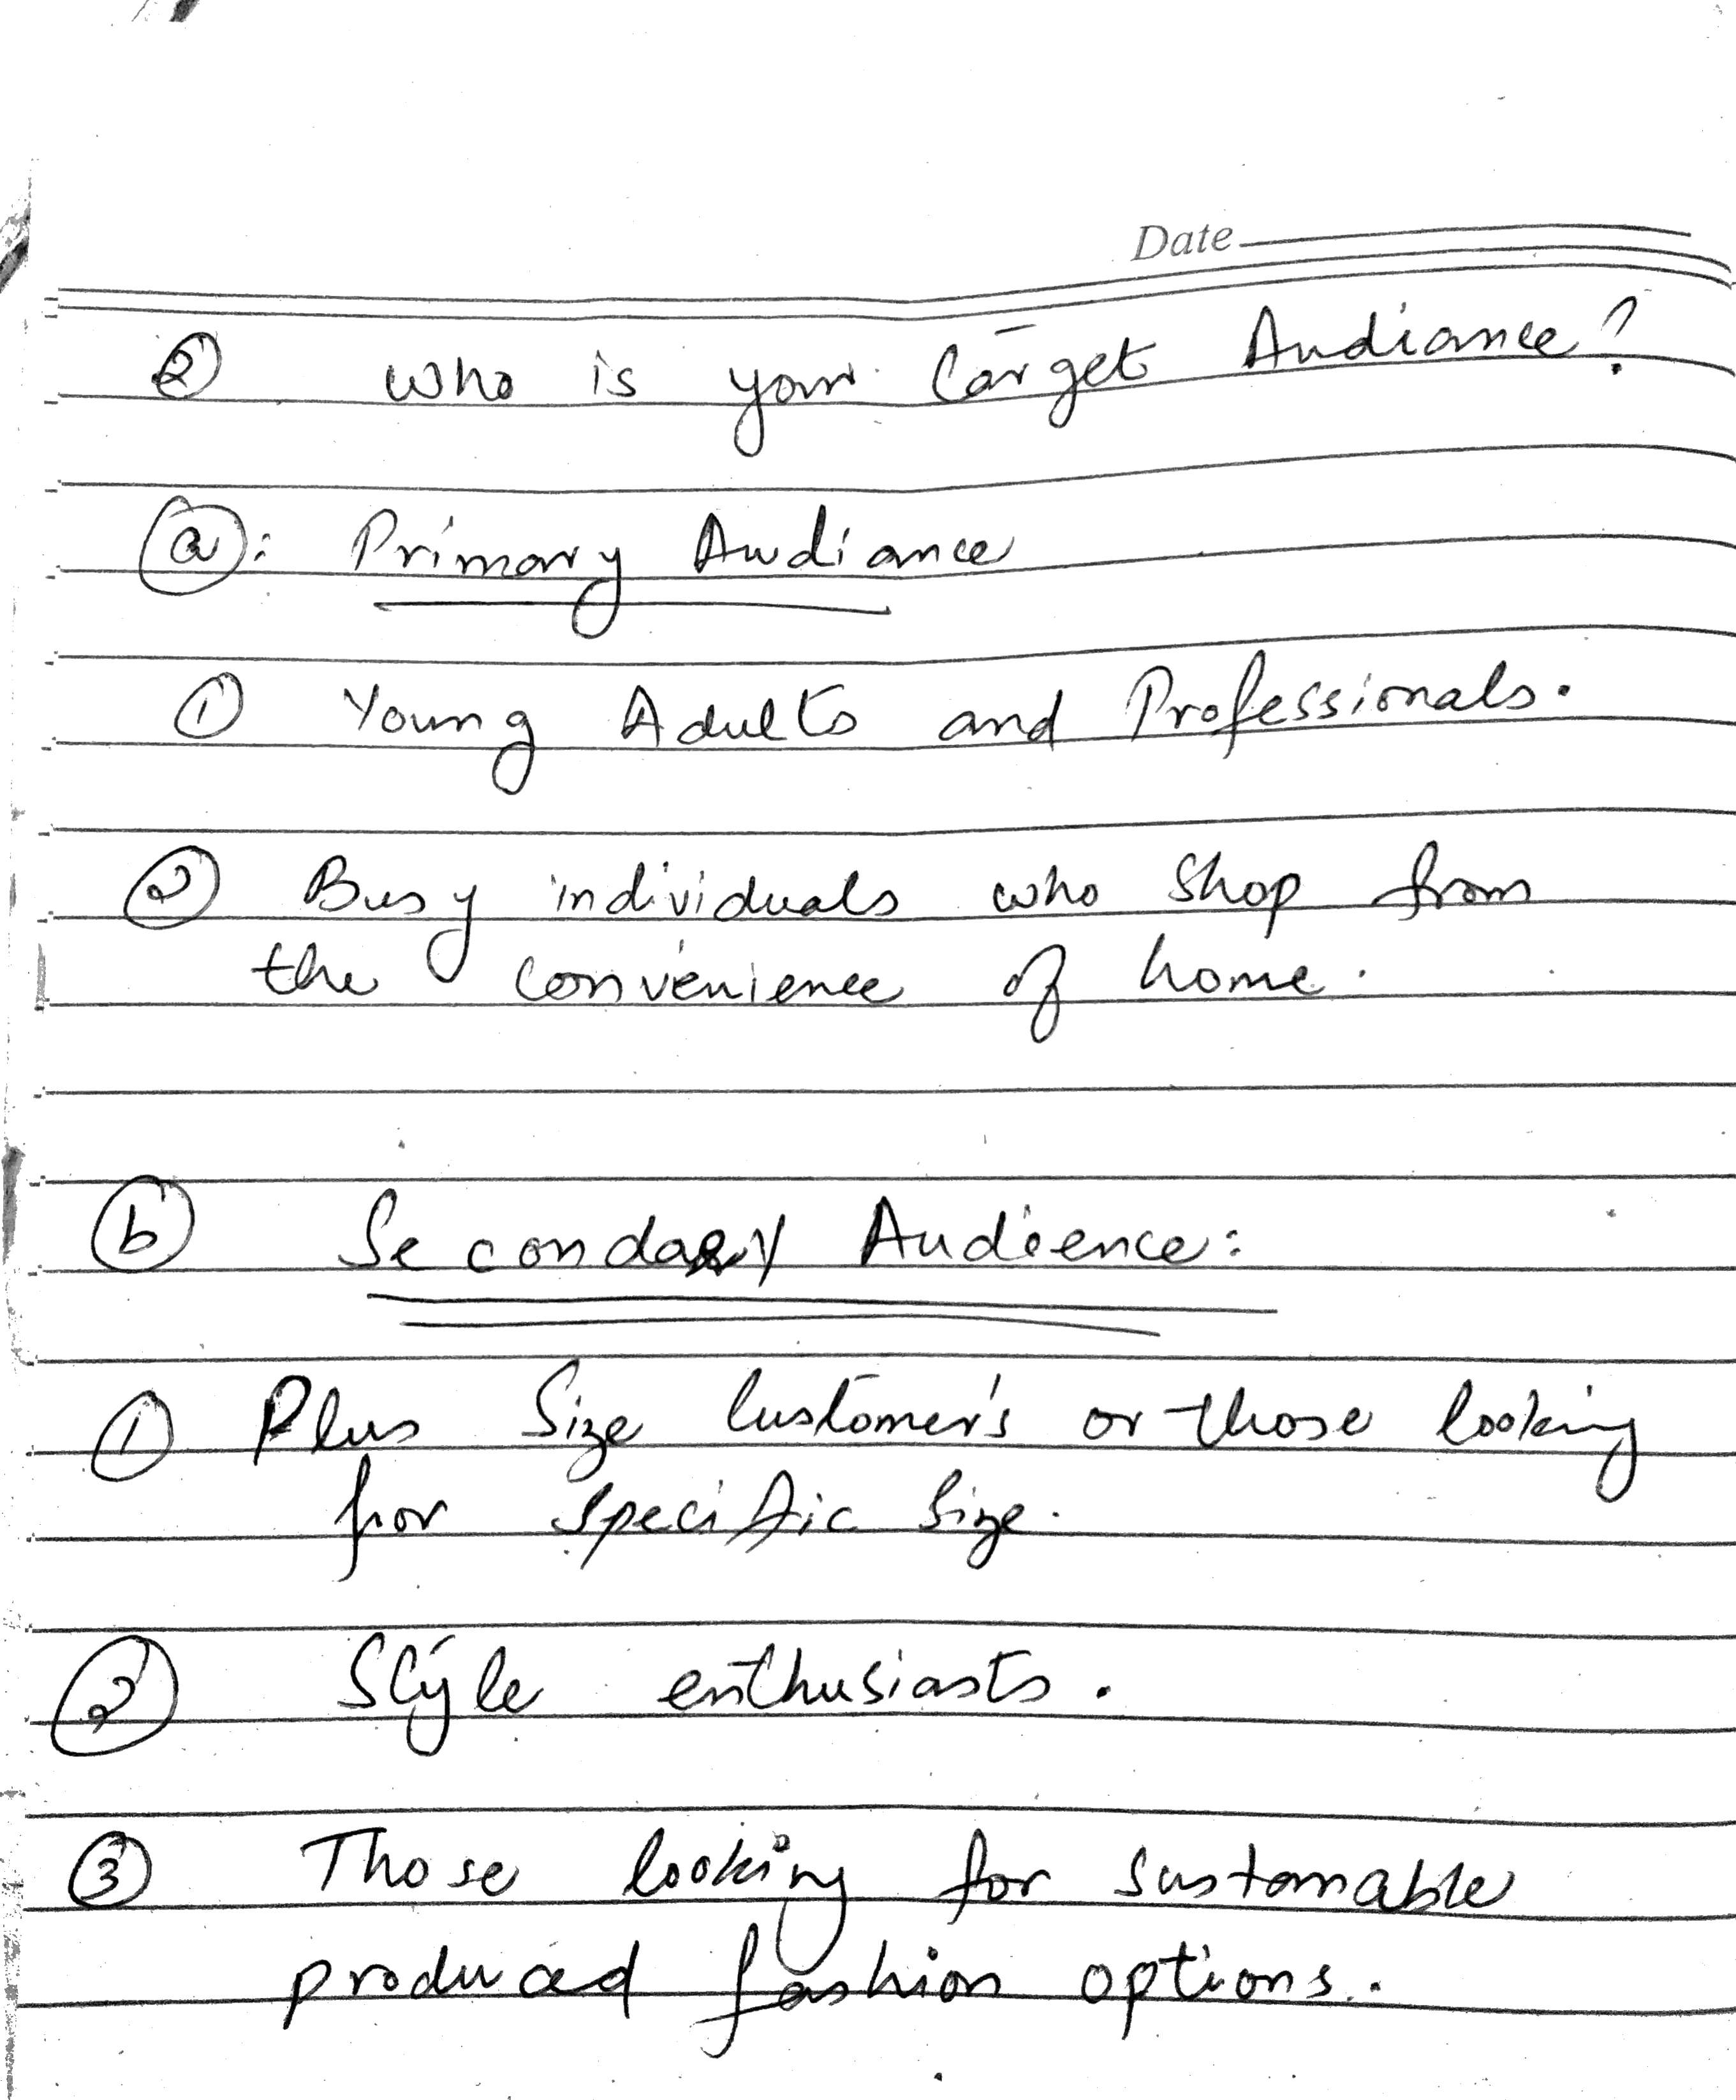 Date
② who is your target Audiance?
ⓐ: Primary Audiance
① Young Adults and Professionals.
② Busy individuals who Shop from
the convenience of home.
ⓑ Secondary Audience:
① Plus Size Customer's or those looking
for specific Size.
② Style enthusiasts.
③ Those looking for sustanable
produced fashion options.